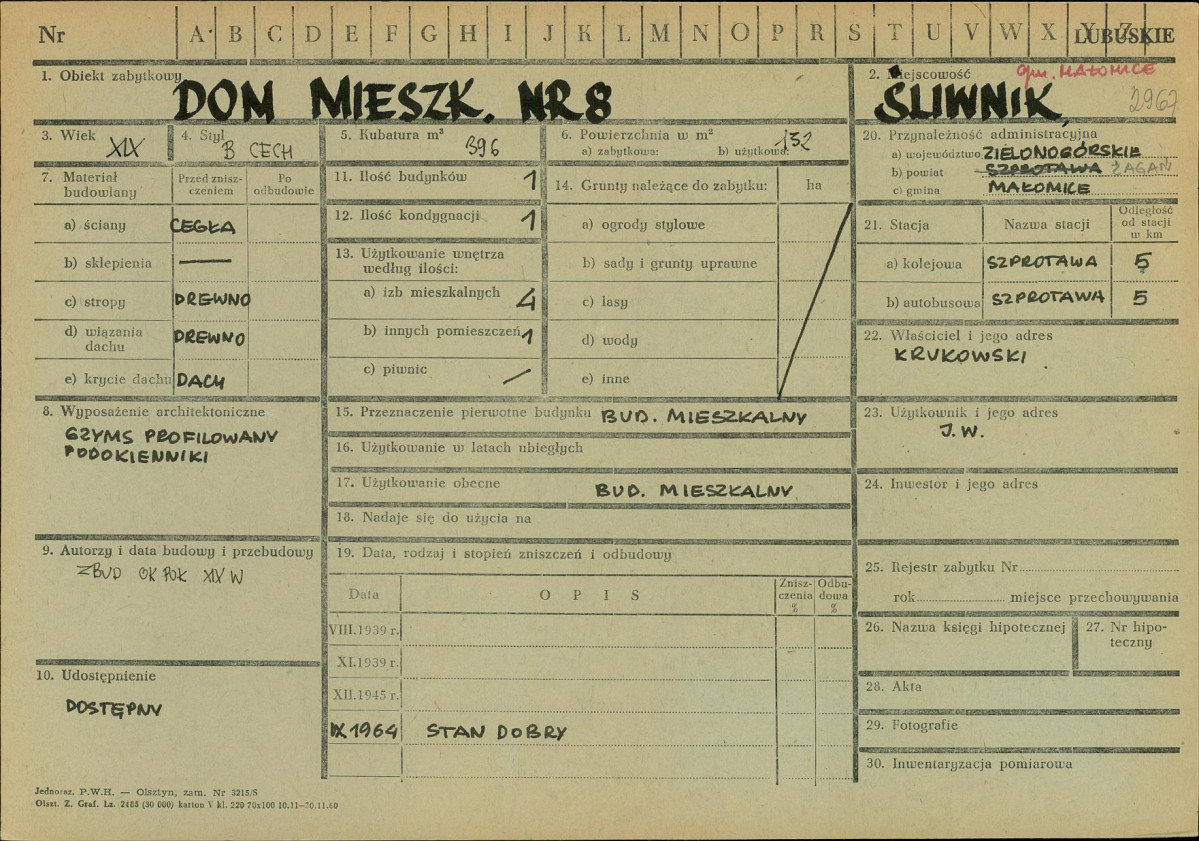 Nr A B C D E F G H I J K L M N O P R S T U V W X Y Z LUBUSKIE
1. Obiekt zabytkowy
DOM MIESZK. NR 8
2. Miejscowość gm. MAŁOMICE
ŚLIWNIK, 2967
3. Wiek XIX
4. Styl B CECH
5. Kubatura m³ 396
6. Powierzchnia w m²
a) zabytkowa: b) użytkowa: 132
7. Materiał budowlany
Przed zniszczeniem
Po odbudowie
a) ściany CEGŁA
b) sklepienia —
c) stropy DREWNO
d) wiązania dachu DREWNO
e) krycie dachu DACH
8. Wyposażenie architektoniczne
GZYMS PROFILOWANY
PODOKIENNIKI
9. Autorzy i data budowy i przebudowy
ZBUD OK POŁ XIX W
10. Udostępnienie
DOSTĘPNY
11. Ilość budynków 1
12. Ilość kondygnacji 1
13. Użytkowanie wnętrza
według ilości:
a) izb mieszkalnych 4
b) innych pomieszczeń 1
c) piwnic /
14. Grunty należące do zabytku: ha
a) ogrody stylowe
b) sady i grunty uprawne
c) lasy
d) wody
e) inne
15. Przeznaczenie pierwotne budynku BUD. MIESZKALNY
16. Użytkowanie w latach ubiegłych
17. Użytkowanie obecne BUD. MIESZKALNY
18. Nadaje się do użycia na
19. Data, rodzaj i stopień zniszczeń i odbudowy
Data OPIS Zniszczenia % Odbudowa %
VIII.1939 r.
XI.1939 r.
XII.1945 r.
IX 1964 STAN DOBRY
20. Przynależność administracyjna
a) województwo ZIELONOGÓRSKIE
b) powiat SZPROTAWA ŻAGAŃ
c) gmina MAŁOMICE
21. Stacja Nazwa stacji Odległość od stacji w km
a) kolejowa SZPROTAWA 5
b) autobusowa SZPROTAWA 5
22. Właściciel i jego adres
KRUKOWSKI
23. Użytkownik i jego adres
J.W.
24. Inwestor i jego adres
25. Rejestr zabytku Nr
rok miejsce przechowywania
26. Nazwa księgi hipotecznej
27. Nr hipoteczny
28. Akta
29. Fotografie
30. Inwentaryzacja pomiarowa
Jednoraz. P.W.H. — Olsztyn, zam. Nr 3215/S
Olszt. Z. Graf. Lz. 2485 (30 000) karton V kl. 220 70x100 10.11—30.11.60